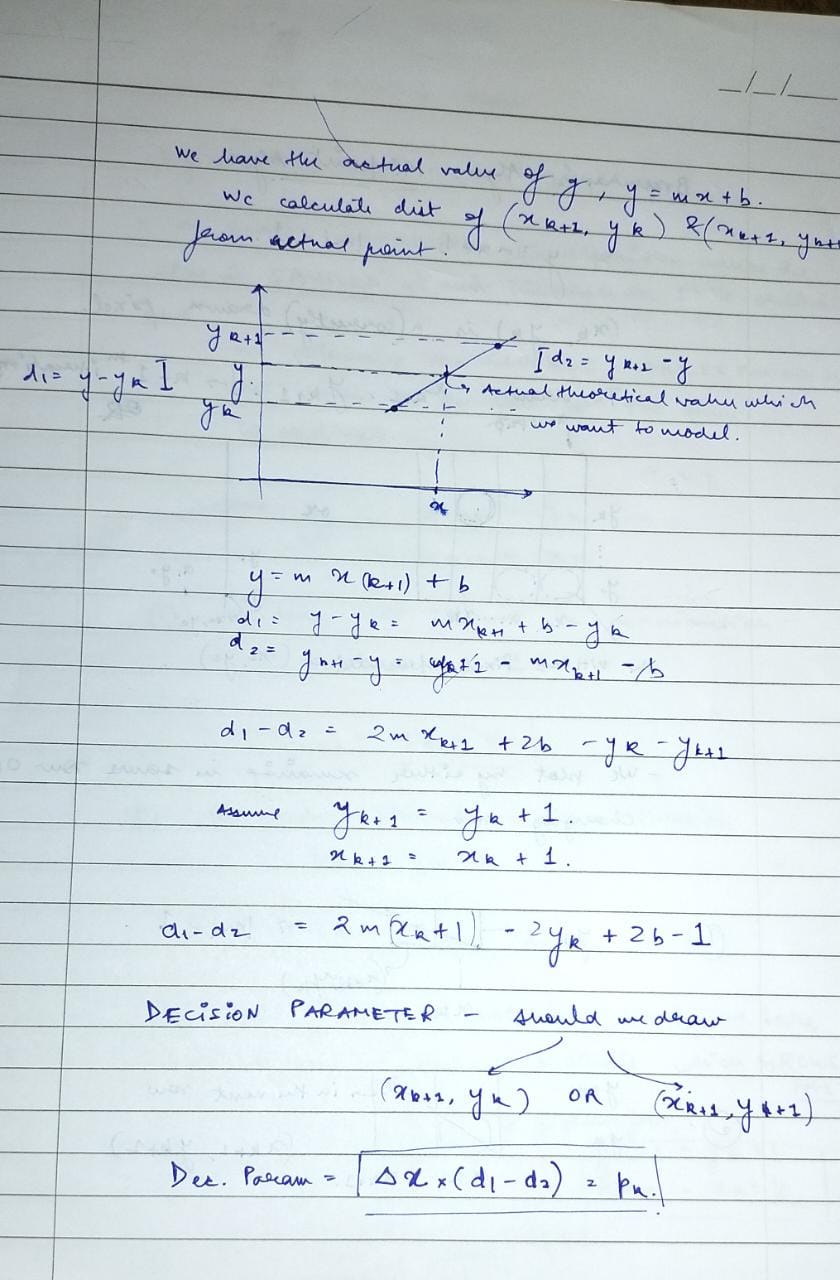 _/_/__
We have the actual value of y, y = mx + b.
We calculate dist of (xk+1, yk) & (xk+1, yk+1
from actual point.
yk+1
d1 = y - yk I y. I d2 = yk+1 - y
yk
Actual theoretical value which
we want to model.
x
y = m x(k+1) + b
d1 = y - yk = mxk+1 + b - yk
d2 = yk+1 - y = yk+1 - mxk+1 - b
d1 - d2 = 2m xk+1 + 2b - yk - yk+1
Assume yk+1 = yk + 1.
xk+1 = xk + 1.
d1 - d2 = 2m(xk+1) - 2yk + 2b - 1
DECISION PARAMETER - should we draw
(xk+1, yk) OR (xk+1, yk+1)
Dec. Param = Δx × (d1 - d2) = pk.